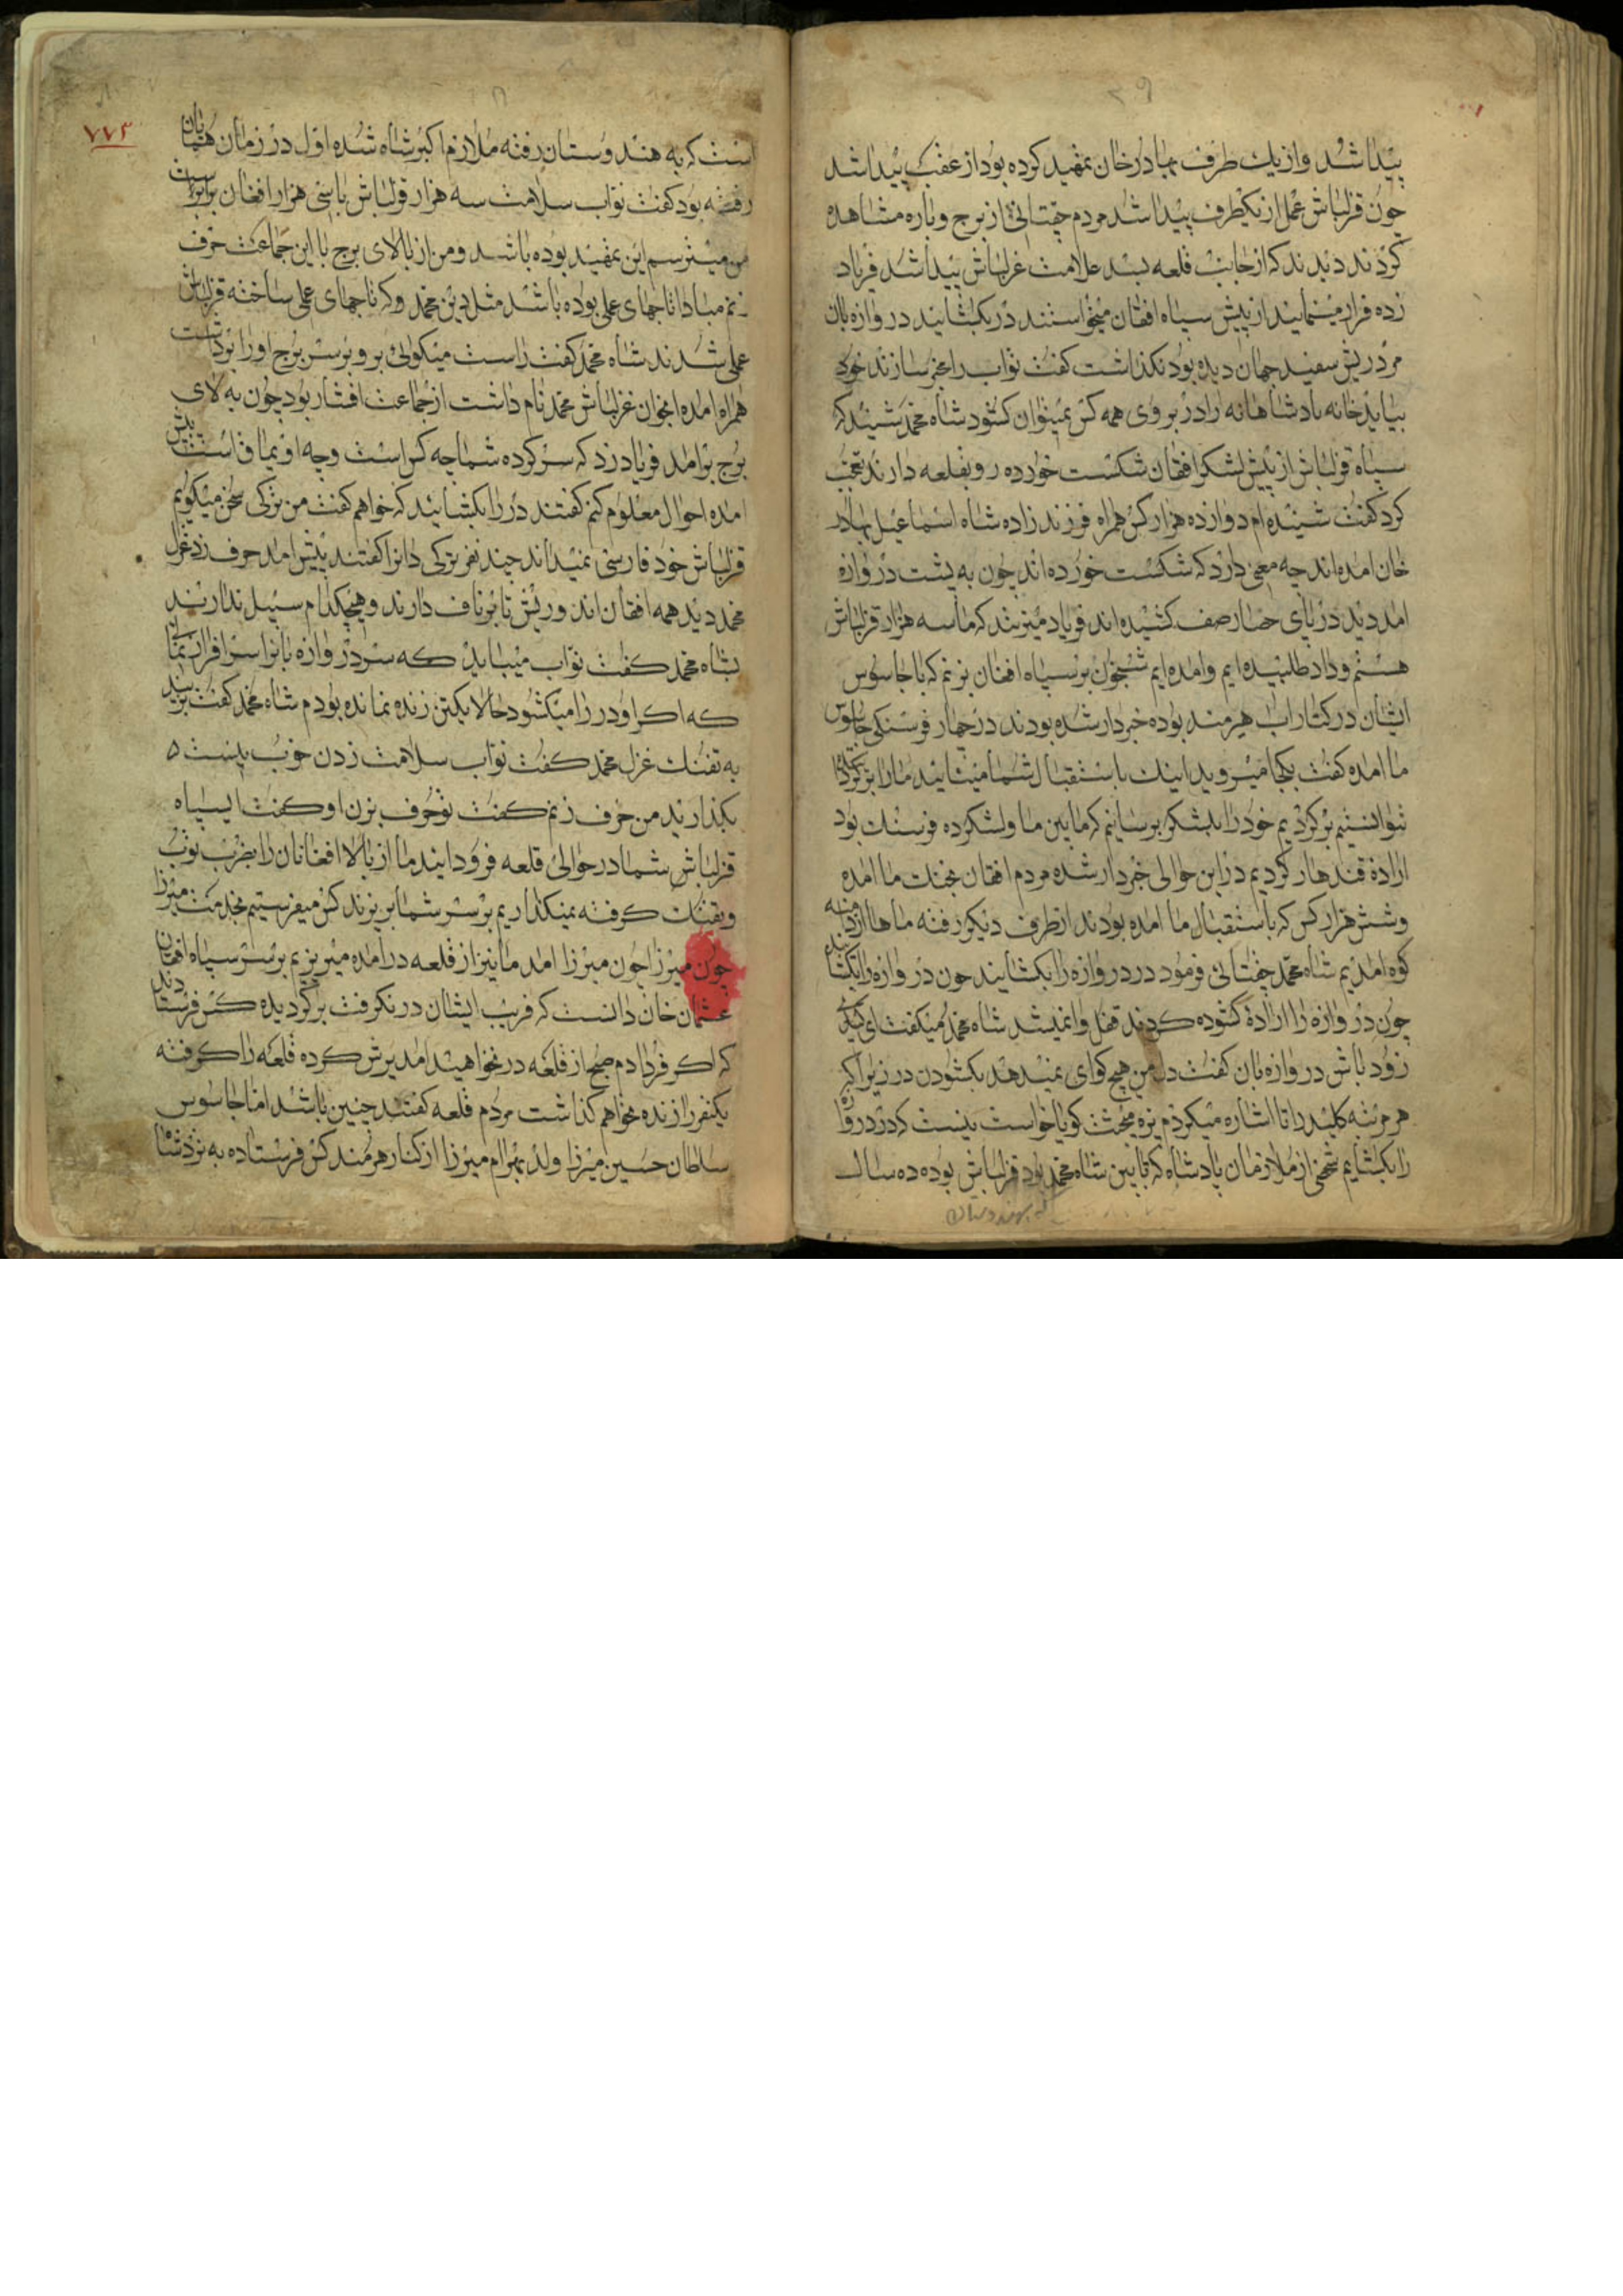 پیدا شد و از یك طرف بهادر خان تمهید کرده بود از عقب پیدا شد
چون قزلباش عمل از یکطرف پیدا شد مردم چغتائی از برج و باره مشاهده
کردند دیدند که از جانب قلعه بسد علامت غزلباش پیدا شد فریاد
زده قرار مینمایند از پیش سپاه افغان میخواستند در بکشایند دروازه بان
مرد ریش سفید جهان دیده بود نکذاشت کفت نواب را خبر سازند خود
بیاید خانه پادشاهانه را در بر وی همه کس نمیتوان کشود شاه محمد شنید که
سپاه قزلباش از پیش لشکر افغان شکست خورده رو بقلعه دارند تعجب
کرد کفت شنیده ام دوازده هزار کس همراه فرزند زاده شاه اسماعیل بهادر
خان امده اند چه معنی دارد که شکست خورده اند چون به پشت دروازه
امد دید در پای حصار صف کشیده اند فریاد میزنند که ما سه هزار قزلباش
هستم و داد طلبیده ایم و امده ایم شبخون بر سپاه افغان بزنم که با جاسوس
ایشان در کنار اب هیرمند بوده خبردار شده بودند در چهار فرسنکی جاسوس
ما امده کفت بکجا میروید اینك باستقبال شما میشایند ما را برکردا
نتوانستیم برکردیم خود را بلشکر برسانیم که مابین ما و لشکر ده فرسنك بود
ارادهٔ قندهار کردیم در این حوالی خبردار شده مردم افغان بجنك ما امده
و شش هزار کس که باستقبال ما امده بودند از طرف دیکر رفته ما ها از دامنه
کوه امدیم شاه محمد چغتائی فرمود در دروازه را بکشایند چون دروازه را بکشایند
چون دروازه را ارادهٔ کشوده کردند قفل وا نمیشد شاه محمد میکفت ای
زود باش دروازه بان کفت دل من هیچ کوای نمیدهد بکشودن در زیرا که
هر مرتبه کلید را تا اشاره میکردم بزه میجت کویا خواست نیست که در دروازه
را بکشایم شخصی از ملازمان پادشاه که تابین شاه محمد بود قزلباش بوده ده سال
که بهندوستان
۷۷۳
است که به هندوستان رفته ملازم اکبر شاه شده اول در زمان همایان
رفته بود کفت نواب سلامت سه هزار قزلباش با سی هزار افغان برابر است
من میترسم این تمهید بوده باشد و من از بالای برج با این جماعت حرف
زنم مبادا تاجهای علی بوده باشد مثل دین محمد و که تاجهای علی ساخته قزلباش
علی شدند شاه محمد کفت راست میکوئی برو بر سر برج او را برداشت
همراه امده انجوان غزلباش محمد نام داشت از جماعت افشار بود چون به لای
برج برامد فریاد زد که سرکرده شما چه کس است و چه اویماق است پیش
امده احوال معلوم کنم کفتند در را بکشایند که خواهم کفت من ترکی سخن میکویم
قزلباش خود فارسی نمیداند چند نفر ترکی دانرا کفتند پیش امد حرف زد غزل
محمد دید همه افغان اند و ریش تا بر ناف دارند و هیچکدام سبیل ندارند
بشاه محمد کفت نواب میباید که سر دروازه بانرا سرافراز نمائی
که اکر او در را میکشود حالا یکتن زنده نمانده بودم شاه محمد کفت بزنید
به تفنك غزل محمد کفت نواب سلامت زدن خوب نیست ه
بکذارید من حرف زنم کفت تو حرف بزن او کفت ایسپاه
قزلباش شما در حوالی قلعه فرود ایند ما از بالا افغانان را بضرب توپ
و تفنك کرفته نمیکذاریم بر سر شما بریزند کس میفرستیم بخدمت میرزا
چون میرزا چون میرزا امد ما نیز از قلعه درامده میریزیم بر سر سپاه افغان
عثمان خان دانست که فریب ایشان در نکرفت برکردیده کس فرستادند
که اکر فردا دم صبح از قلعه در نخواهید امد یرش کرده قلعه را کرفته
یکنفر را زنده نخواهم کذاشت مردم قلعه کفتند چنین باشد اما جاسوس
سلطان حسین میرزا ولد بهرام میرزا از کنار هرمند کس فرستاده به نزد شا